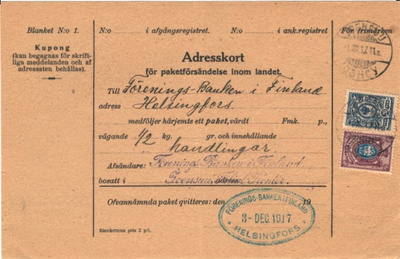 Blanket N:o 1.
N:o i afgångsregistret.
N:o i ank.registret.
För frimärken
Kupong
(kan begagnas för skrift-
liga meddelanden och af
adressaten behållas).
Adresskort
för paketförsändelse inom landet.
Till Förenings-Banken i Finland
adress Helsingfors.
medföljer härjemte ett paket, värdt Fmk. p.,
vägande 1/2 kg. gr. och innehållande
handlingar
Afsändare: Förenings Banken i Finland
bosatt i Kontor
Ofvannämnda paket qvitteres: den 19
FÖRENINGS-BANKEN I FINLAND
3-DEC. 1917
HELSINGFORS
Blankettens pris 2 p:i.